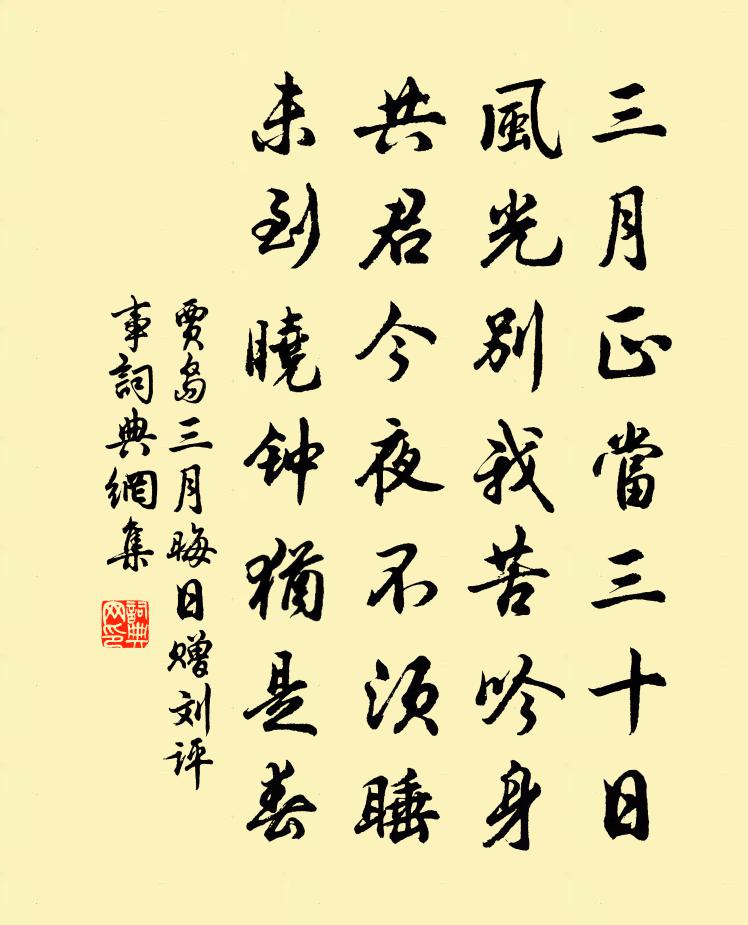 三月正當三十日
風光別我苦吟身
共君今夜不须睡
未到曉钟猶是春
贾岛三月晦日赠刘评
事詞典網集
詞典
网印